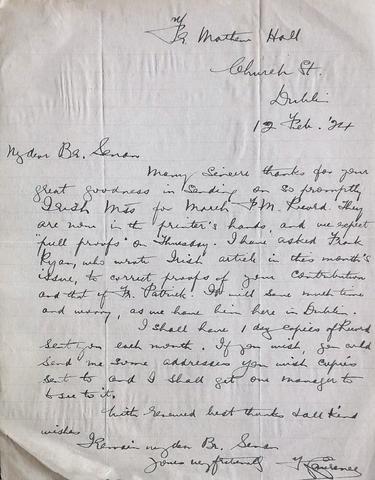 Fr. Mathew Hall
Church St.
Dublin
12 Feb. '24
My dear Br. Senan
Many sincere thanks for your
great goodness in sending on so promptly
Irish Mss for March F.M. Record. They
are now in the printer's hands, and we expect
"pull proofs" on Thursday. I have asked Frank
Ryan, who wrote Irish article in this month's
issue, to correct proofs of your contribution
and that of Fr. Patrick. It will save much time
and worry, as we have him here in Dublin.
I shall have 1 doz copies of Record
sent you each month. If you wish, you could
send me some addresses you wish copies
sent to and I shall get our manager to
to see to it.
With renewed best thanks & all kind
wishes
I remain my dear Br. Senan
Yours very fraternally